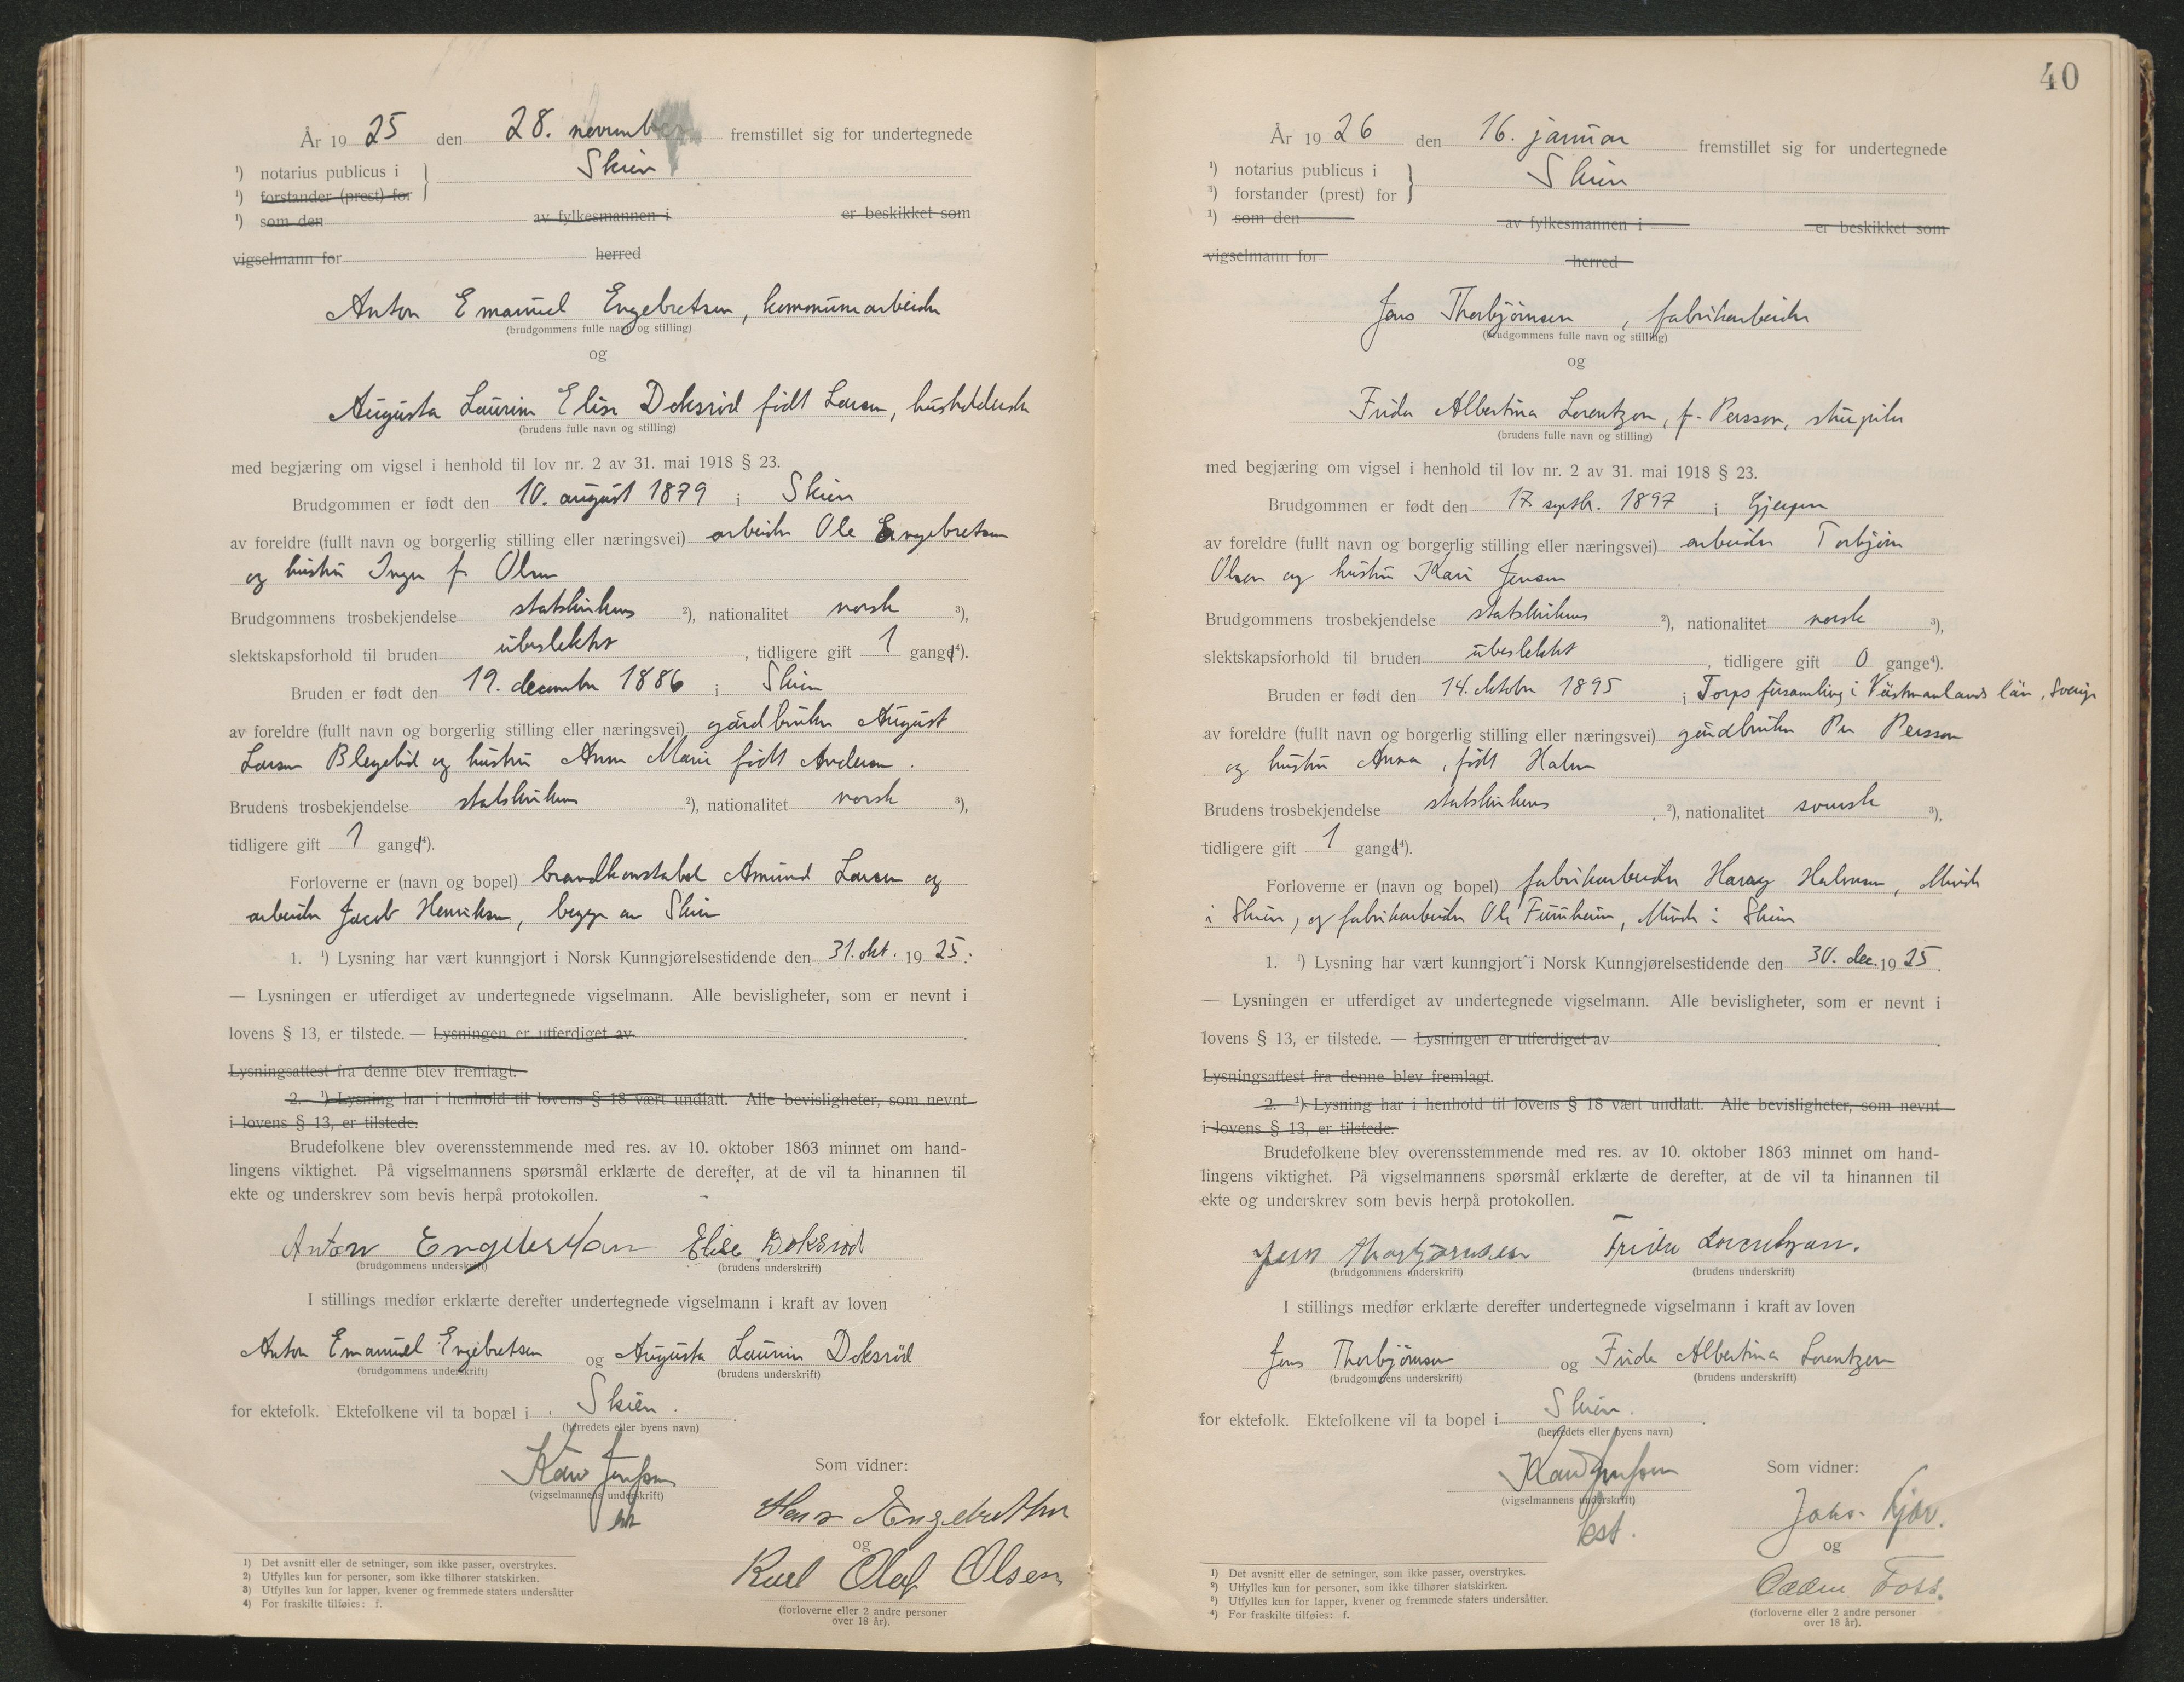 År 19 25 den 28. november fremstillet sig for undertegnede
¹) notarius publicus i } Skien
¹) forstander (prest) for
¹) som den av fylkesmannen i er beskikket som
vigselmann for herred
Anton Emanuel Engebretsen, kommunearbeider
(brudgommens fulle navn og stilling)
og
Augusta Laurine Elise Doksrød født Larsen, husholderske
(brudens fulle navn og stilling)
med begjæring om vigsel i henhold til lov nr. 2 av 31. mai 1918 § 23.
Brudgommen er født den 10. august 1879 i Skien
av foreldre (fullt navn og borgerlig stilling eller næringsvei) arbeider Ole Engebretsen
og hustru Inger f. Olsen
Brudgommens trosbekjendelse statskirkens ²), nationalitet norsk ³),
slektskapsforhold til bruden ubeslektet, tidligere gift 1 gang⁴).
Bruden er født den 19. december 1886 i Skien
av foreldre (fullt navn og borgerlig stilling eller næringsvei) gårdbruker August
Larsen og hustru Anne Marie født Andersen.
Brudens trosbekjendelse statskirkens ²), nationalitet norsk ³),
tidligere gift 1 gang⁴).
Forloverne er (navn og bopel) brandkonstabel Amund Larsen og
arbeider Jacob Henriksen, begge av Skien
1. ¹) Lysning har vært kunngjort i Norsk Kunngjørelsestidende den 31. okt. 19 25.
— Lysningen er utferdiget av undertegnede vigselmann. Alle bevisligheter, som er nevnt i
lovens § 13, er tilstede. — Lysningen er utferdiget av .
Lysningsattest fra denne blev fremlagt.
2. ¹) Lysning har i henhold til lovens § 18 vært undlatt. Alle bevisligheter, som nevnt
i lovens § 13, er tilstede.
Brudefolkene blev overensstemmende med res. av 10. oktober 1863 minnet om hand-
lingens viktighet. På vigselmannens spørsmål erklærte de derefter, at de vil ta hinannen til
ekte og underskrev som bevis herpå protokollen.
Anton Engebretsen Elise Doksrød
(brudgommens underskrift) (brudens underskrift)
I stillings medfør erklærte derefter undertegnede vigselmann i kraft av loven
Anton Emanuel Engebretsen og Augusta Laurine Doksrød
(brudgommens underskrift) (brudens underskrift)
for ektefolk. Ektefolkene vil ta bopæl i Skien.
(herredets eller byens navn)
Som vidner:
(vigselmannens underskrift)
Hans Engebretsen
og
Karl Olaf Olsen
(forloverne eller 2 andre personer
over 18 år).
1) Det avsnitt eller de setninger, som ikke passer, overstrykes.
2) Utfylles kun for personer, som ikke tilhører statskirken.
3) Utfylles kun for lapper, kvener og fremmede staters undersåtter
4) For fraskilte tilføies: f.
40
År 19 26 den 16. januar fremstillet sig for undertegnede
¹) notarius publicus i } Skien
¹) forstander (prest) for
¹) som den av fylkesmannen i er beskikket som
vigselmann for herred
Jens Thorbjørnsen, fabrikarbeider
(brudgommens fulle navn og stilling)
og
Frida Albertina Lorentzen, f. Persson,
(brudens fulle navn og stilling)
med begjæring om vigsel i henhold til lov nr. 2 av 31. mai 1918 § 23.
Brudgommen er født den 17. septbr. 1897 i Gjerpen
av foreldre (fullt navn og borgerlig stilling eller næringsvei) arbeider Torbjørn
Olsen og hustru Kari Jensen
Brudgommens trosbekjendelse statskirkens ²), nationalitet norsk ³),
slektskapsforhold til bruden ubeslektet, tidligere gift 0 gange⁴).
Bruden er født den 14. oktober 1895 i Torps församling i Västmanlands län, Sverige
av foreldre (fullt navn og borgerlig stilling eller næringsvei) gårdbruker Per Persson
og hustru Anna, født Holm
Brudens trosbekjendelse statskirkens ²), nationalitet svensk ³),
tidligere gift 1 gang⁴).
Forloverne er (navn og bopel) fabrikarbeider Harry Halvorsen,
i Skien, og fabrikarbeider Ole Furuheim, i Skien
1. ¹) Lysning har vært kunngjort i Norsk Kunngjørelsestidende den 30. dec. 19 25.
— Lysningen er utferdiget av undertegnede vigselmann. Alle bevisligheter, som er nevnt i
lovens § 13, er tilstede. — Lysningen er utferdiget av .
Lysningsattest fra denne blev fremlagt.
2. ¹) Lysning har i henhold til lovens § 18 vært undlatt. Alle bevisligheter, som nevnt
i lovens § 13, er tilstede.
Brudefolkene blev overensstemmende med res. av 10. oktober 1863 minnet om hand-
lingens viktighet. På vigselmannens spørsmål erklærte de derefter, at de vil ta hinannen til
ekte og underskrev som bevis herpå protokollen.
Jens Thorbjørnsen Frida Lorentzen.
(brudgommens underskrift) (brudens underskrift)
I stillings medfør erklærte derefter undertegnede vigselmann i kraft av loven
Jens Thorbjørnsen og Frida Albertina Lorentzen
(brudgommens underskrift) (brudens underskrift)
for ektefolk. Ektefolkene vil ta bopel i Skien.
(herredets eller byens navn)
Som vidner:
(vigselmannens underskrift)
kst.
og
Foss.
(forloverne eller 2 andre personer
over 18 år).
1) Det avsnitt eller de setninger, som ikke passer, overstrykes.
2) Utfylles kun for personer, som ikke tilhører statskirken.
3) Utfylles kun for lapper, kvener og fremmede staters undersåtter.
4) For fraskilte tilføies: f.